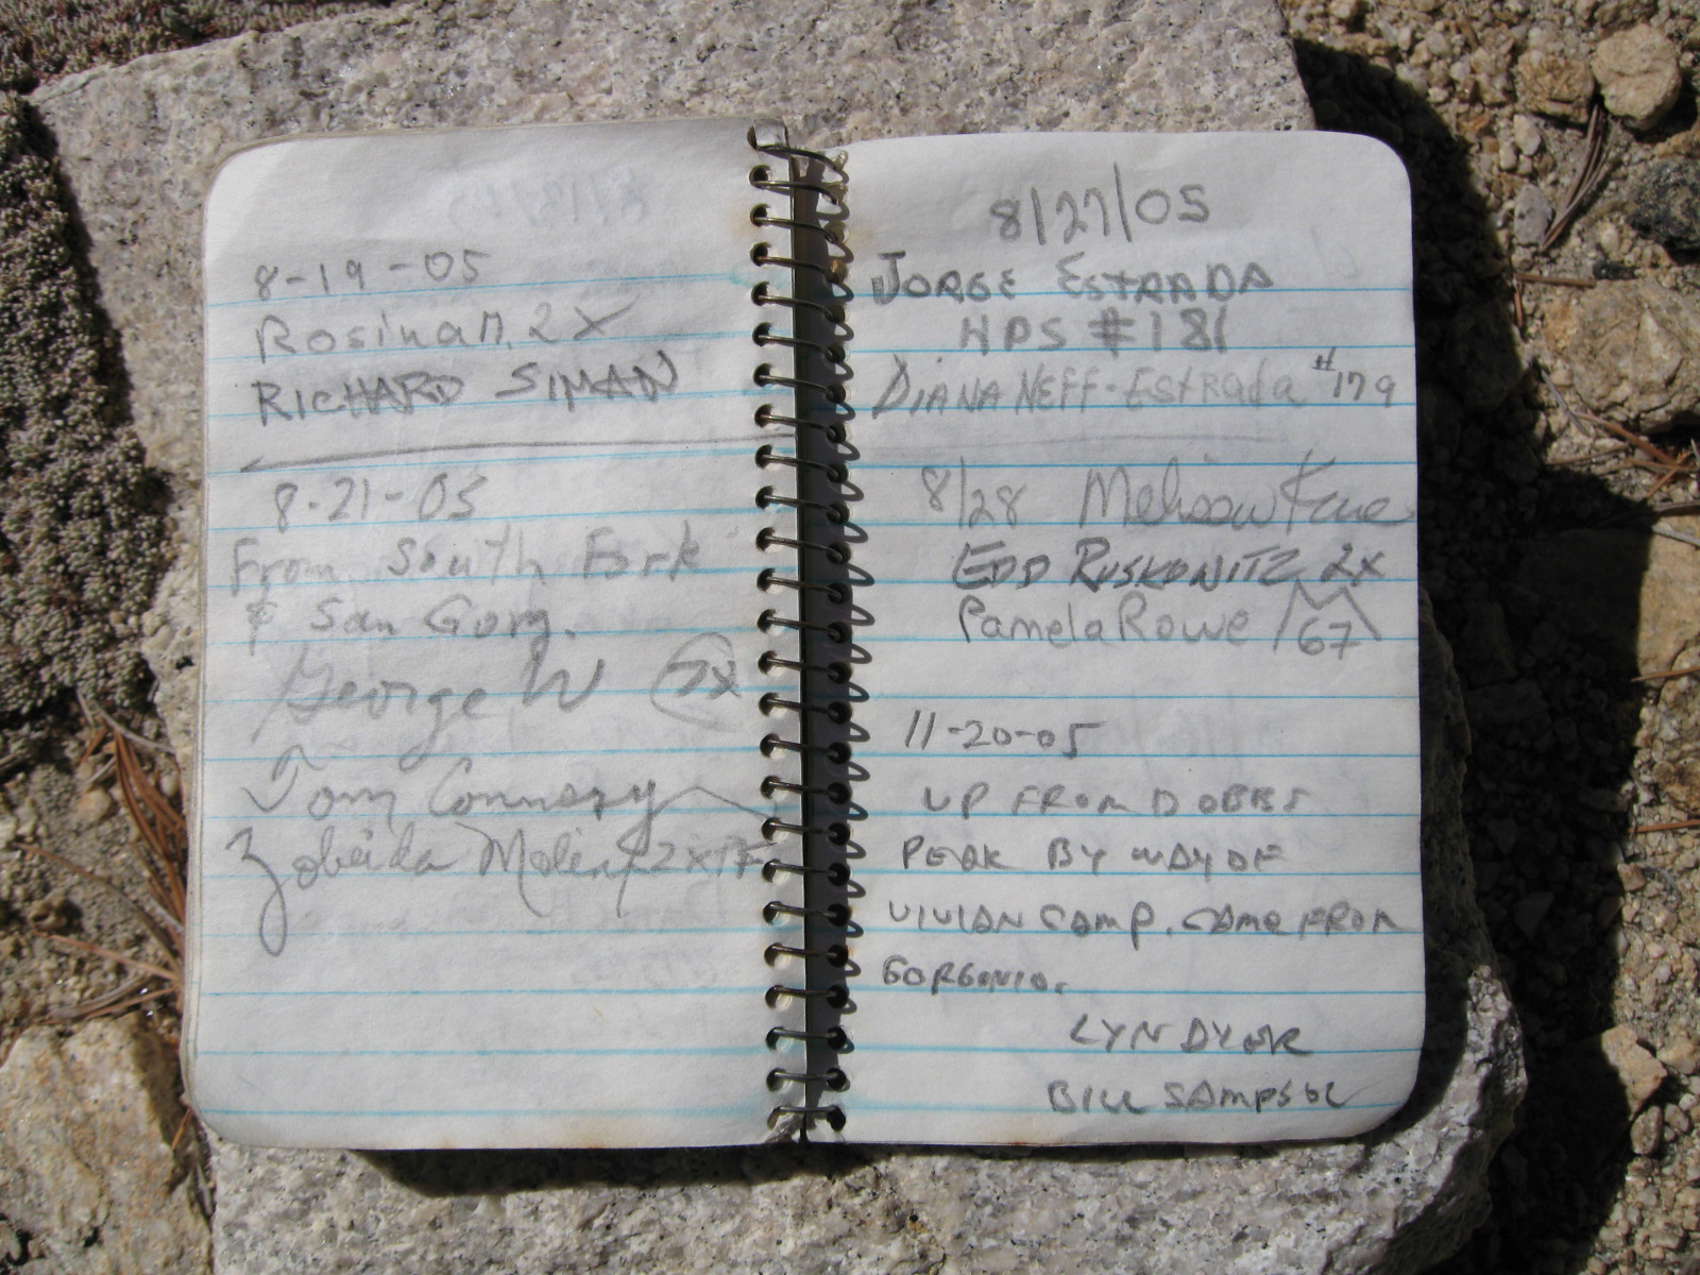 8-19-05
Rosina M. 2X
RICHARD SIMAN
8-21-05
From South Fork
& San Gorg.
George W 7x
Tom Connery
Zobeida Molina 2x
8/27/05
JORGE ESTRADA
HPS #181
DIANA NEFF-Estrada #179
8/28 Melissa
EDD RUSKOWITZ 2X
Pamela Rowe 67
11-20-05
UP FROM DOBBS
PEAK BY WAY OF
VIVIAN CAMP. CAME FROM
GORGONIO.
LYN DYER
BILL SAMPSON